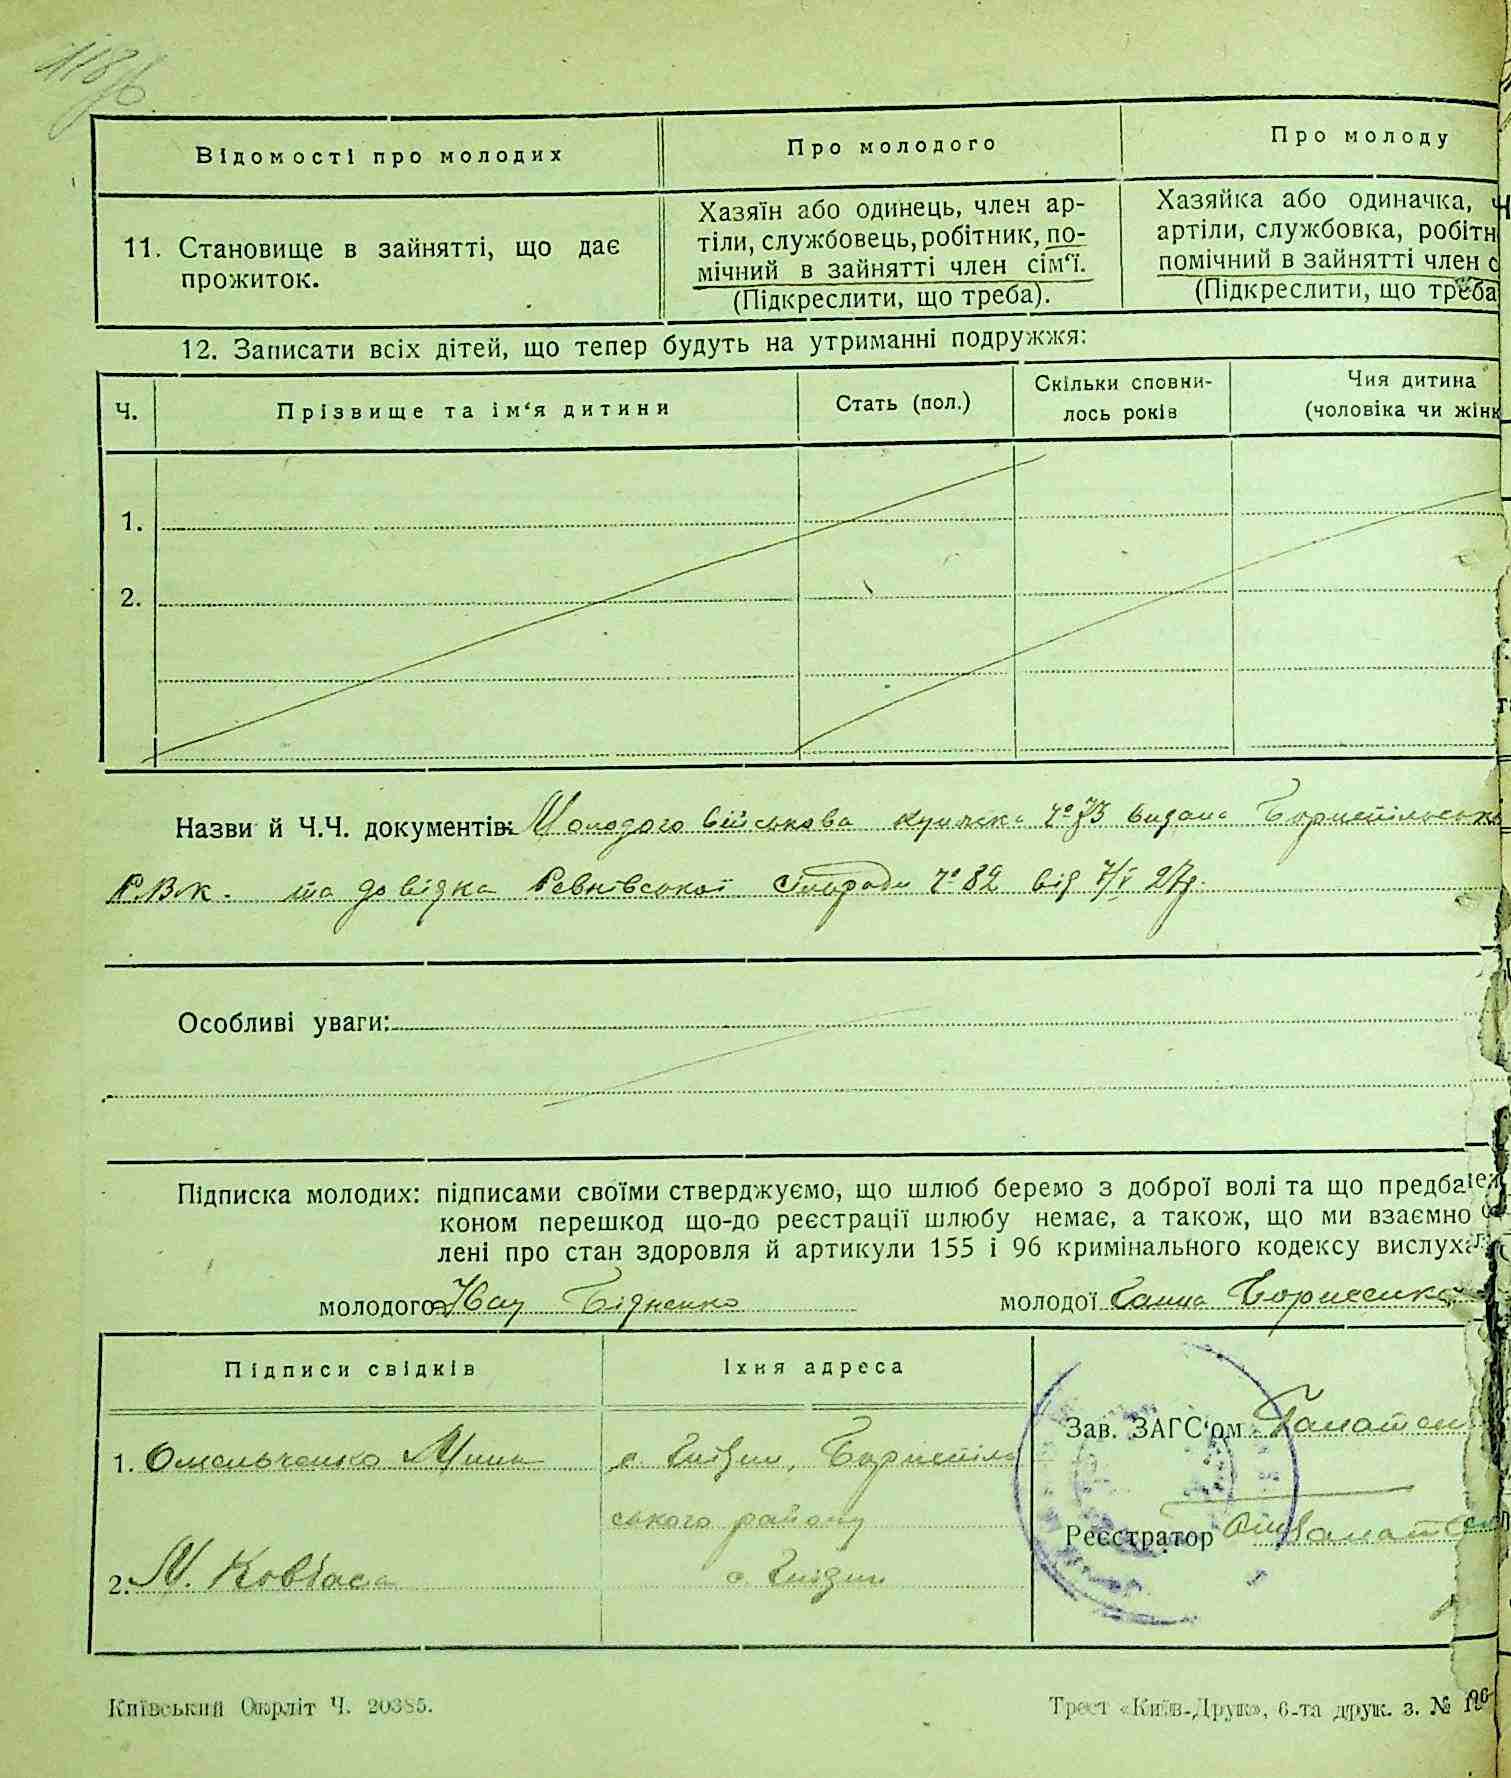 118/б
Відомості про молодих
Про молодого
Про молоду
11. Становище в зайнятті, що дає
прожиток.
Хазяїн або одинець, член ар-
тіли, службовець, робітник, по-
мічний в зайнятті член сім'ї.
(Підкреслити, що треба).
Хазяйка або одиначка,
артіли, службовка, робітн
помічний в зайнятті член с
(Підкреслити, що треба
12. Записати всіх дітей, що тепер будуть на утриманні подружжя:
Ч.
Прізвище та ім'я дитини
Стать (пол.)
Скільки сповни-
лось років
Чия дитина
(чоловіка чи жінк
1.
2.
Назви й Ч.Ч. документів: Молодого військова книжка Ч° 73 видана Бориспільськ
Р.В.К. та довідка Ревнівської сільради Ч° 82 від 7/V 27р.
Особливі уваги:
Підписка молодих: підписами своїми стверджуємо, що шлюб беремо з доброї волі та що предба
коном перешкод що-до реєстрації шлюбу немає, а також, що ми взаємно
лені про стан здоровля й артикули 155 і 96 кримінального кодексу вислуха
молодого Іван Бідненко молодої Ганна
Підписи свідків
Їхня адреса
1. Омельченко
с. Гнідин, Бориспіль
ського району
2. М. Ковбаса
с. Гнідин
Зав. ЗАГС'ом
Реєстратор
Київський Окрліт Ч. 20385.
Трест «Київ-Друк», 6-та друк. з. №